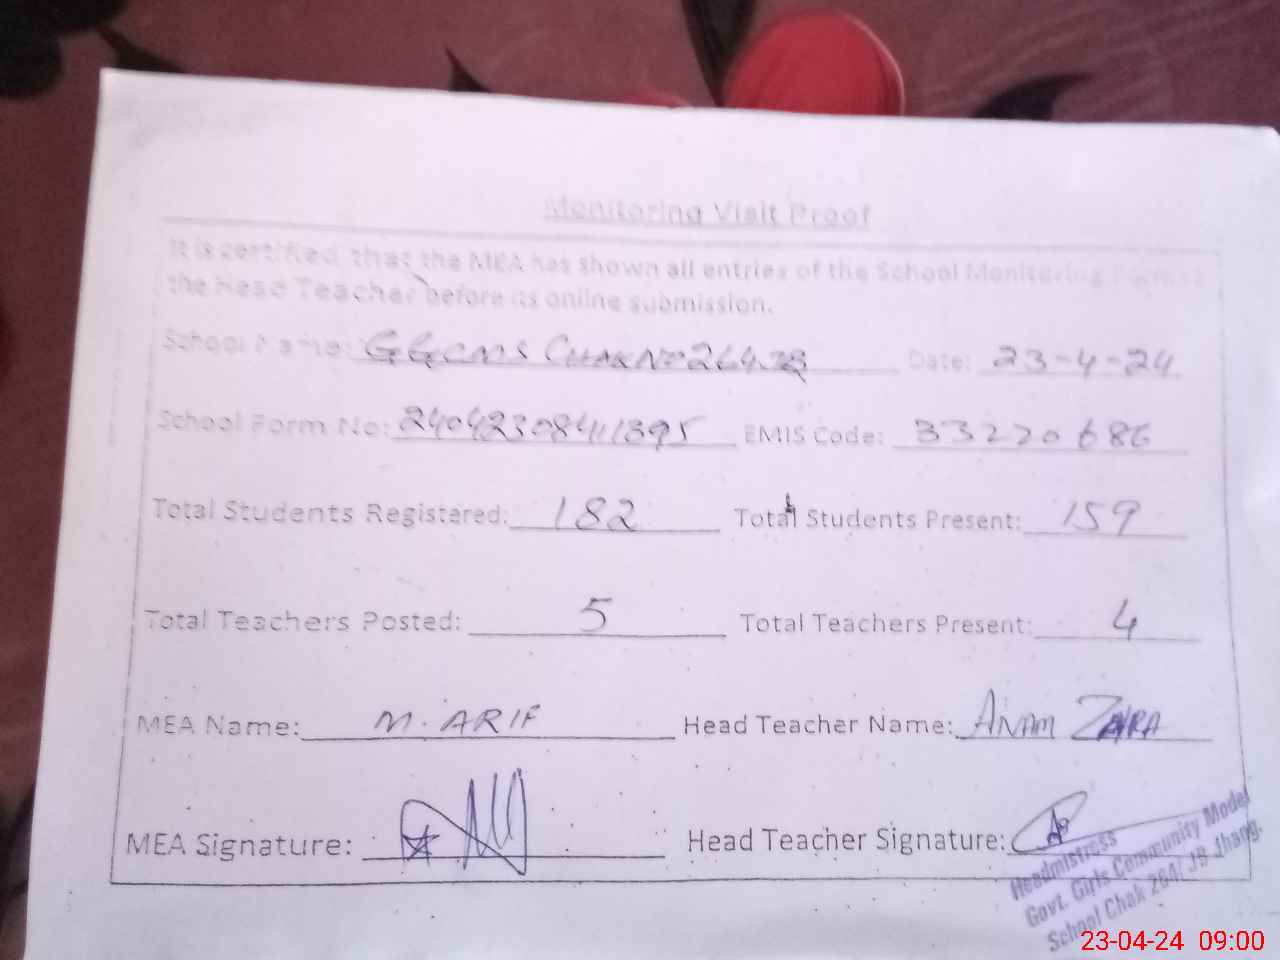 Monitoring Visit Proof
It is certified that the MEA has shown all entries of the School Monitoring Form to
the Head Teacher before its online submission.
School Name: GGCMS CHAK NO 264 JB Date: 23-4-24
School Form No: 24042308411395 EMIS Code: 33220686
Total Students Registered: 182 Total Students Present: 159
Total Teachers Posted: 5 Total Teachers Present: 4
MEA Name: M. ARIF Head Teacher Name: ANAM ZAHRA
MEA Signature: Head Teacher Signature:
Headmistress
Govt. Girls Community Model
School Chak 264/ JB Jhang.
23-04-24 09:00